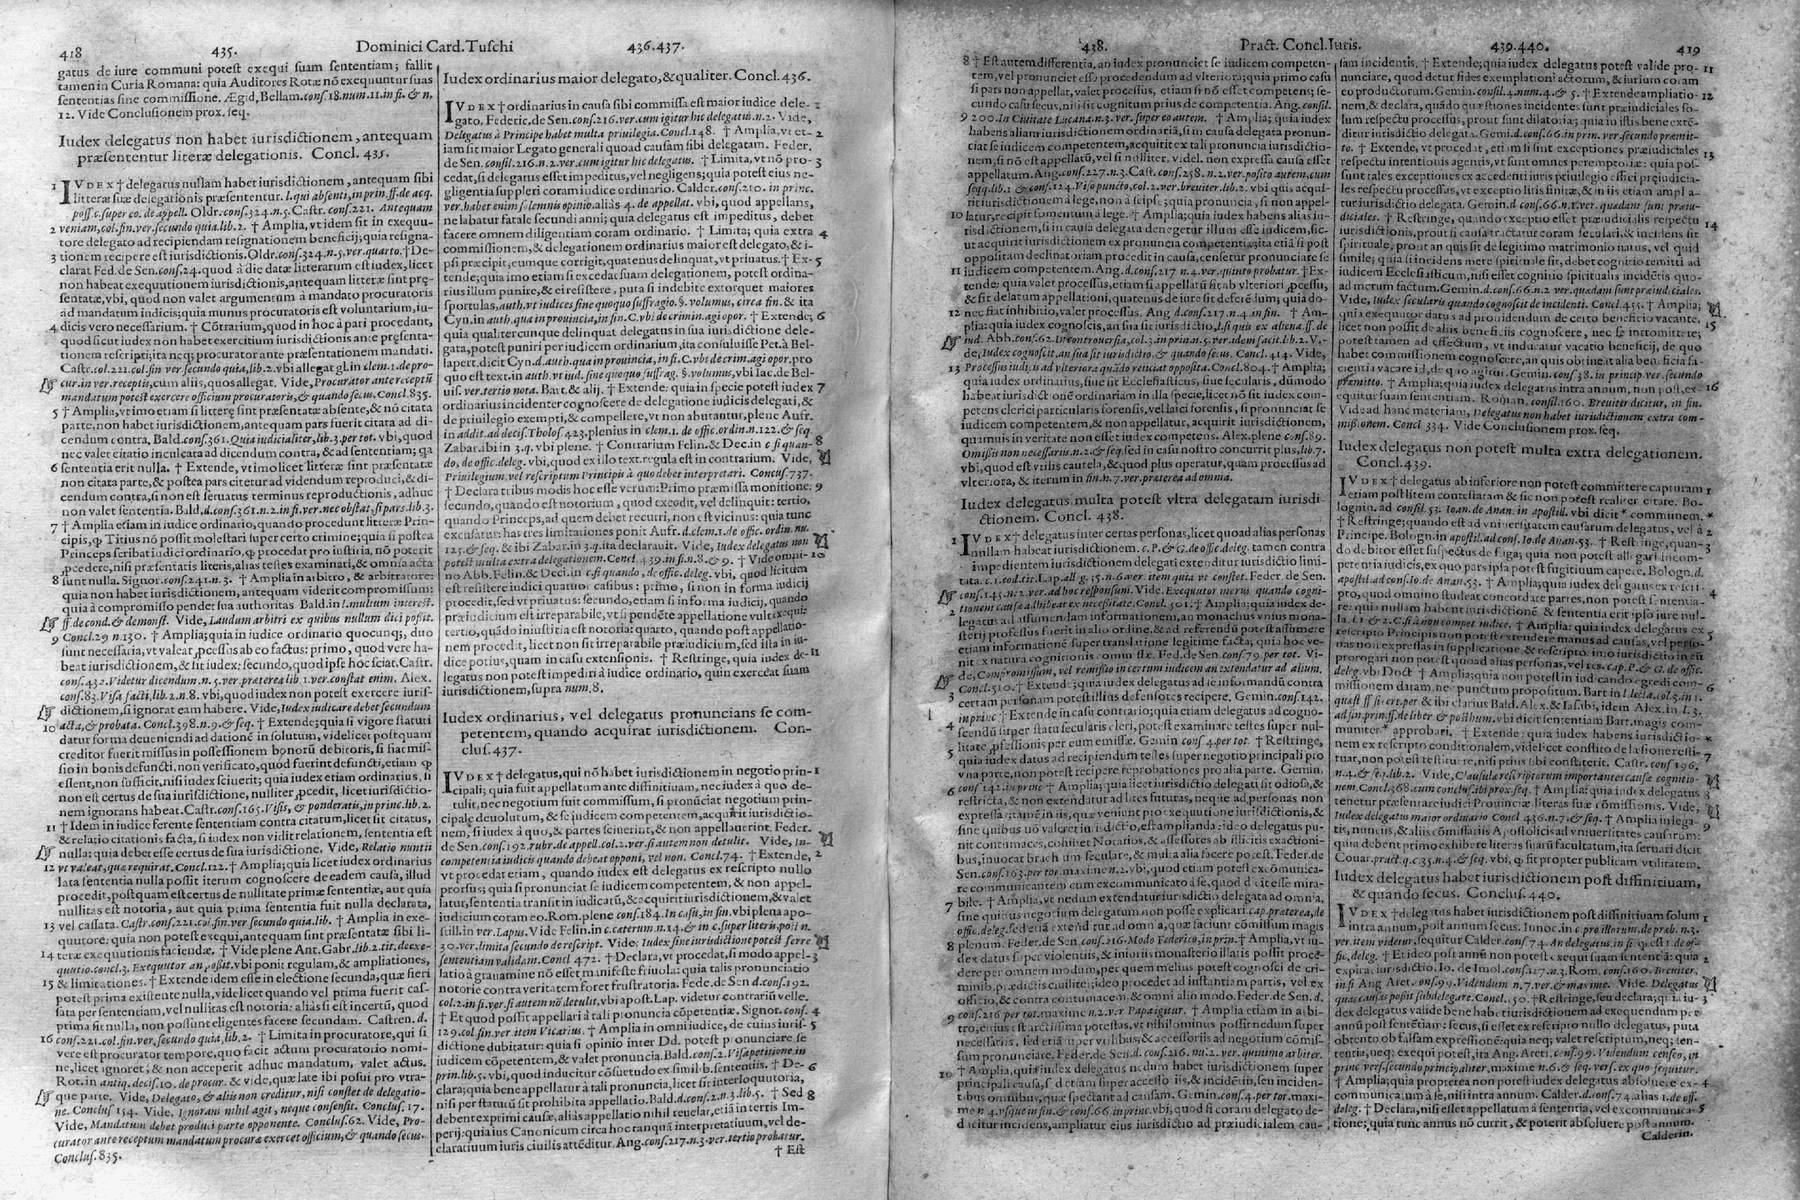 418 435. Dominici Card. Tuschi 436.437.
gatus de iure communi potest exequi suam sententiam; fallit
tamen in Curia Romana: quia Auditores Rotæ nō exequuntur suas
sententias sine commissione. Ægid, Bellam. cons. 18. num. 11. in fi. & n.
12. Vide Conclusionem prox. seq.
Iudex delegatus non habet iurisdictionem, antequam
præsententur literæ delegationis. Concl. 435.
1 IVDEX † delegatus nullam habet iurisdictionem, antequam sibi
litteræ suæ delegationis præsententur. l. qui absenti, in prin. ff. de acq.
poss. c. super eo. de appell. Oldr. cons. 324. n. 5. Castr. cons. 221. Antequam
2 veniam, col. fin. ver. secundo quia. lib. 2. † Amplia, vt idem sit in exequu-
tore delegato ad recipiendam resignationem beneficij; quia resigna-
3 tionem recipere est iurisdictionis. Oldr. cons. 324. n. 5. ver. quarto. † De-
clarat Fed. de Sen. cons. 24. quod à die datæ litterarum est iudex, licet
non habeat exequutionem iurisdictionis, antequam litteræ sint præ-
sentatæ, vbi, quod non valet argumentum à mandato procuratoris
ad mandatum iudicis; quia munus procuratoris est voluntarium, iu-
4 dicis vero necessarium. † Cōtrarium, quod in hoc à pari procedant,
quod sicut iudex non habet exercitium iurisdictionis ante præsenta-
tionem rescripti; ita neq; procurator ante præsentationem mandati.
Castr. col. 221. col. fin ver. secundo quia, lib. 2. vbi allegat gl. in clem. 1. de pro-
cur. in ver. receptis, cum aliis, quos allegat. Vide, Procurator ante receptū
mandatum potest exercere officium procuratoris, & quando secus. Concl. 835.
5 † Amplia, vt imo etiam si litteræ sint præsentatæ absente, & nō citata
parte, non habet iurisdictionem, antequam pars fuerit citata ad di-
cendum contra, Bald. cons. 361. Quia iudicialiter, lib. 3. per tot. vbi, quod
nec valet citatio inculcata ad dicendum contra, & ad sententiam; qa
6 sententia erit nulla. † Extende, vt imo licet litteræ sint præsentatæ
non citata parte, & postea pars citetur ad videndum reproduci, & di-
cendum contra, si non est seruatus terminus reproductionis, adhuc
non valet sententia. Bald. d. cons. 361. n. 2. in fi. ver. nec obstat, si pars. lib. 3.
7 † Amplia etiam in iudice ordinario, quando procedunt litteræ Prin-
cipis, ꝙ Titius nō possit molestari super certo crimine; quia si postea
Princeps scribat iudici ordinario, ꝙ procedat pro iustitia, nō poterit
ꝓcedere, nisi præsentatis literis, alias testes examinati, & omnia acta
8 sunt nulla. Signor. cons. 241. n. 3. † Amplia in arbitro, & arbitratore:
quia non habet iurisdictionem, antequam viderit compromissum:
quia à compromisso pendet sua authoritas. Bald. in l. multum interest.
ff. de cond. & demonst. Vide, Laudum arbitri ex quibus nullum dici possit.
9 Concl. 29 n. 130. † Amplia; quia in iudice ordinario quocunq; duo
sunt necessaria, vt valeat ꝓcessus ab eo factus: primo, quod vere ha-
beat iurisdictionem, & sit iudex: secundo, quod ipse hoc sciat. Castr.
cons. 432. Videtur dicendum n. 5. ver. præterea lib. 1. ver. constat enim. Alex.
cons. 83. Visa facti, lib. 2. n. 8. vbi, quod iudex non potest exercere iuris-
dictionem, si ignorat eam habere. Vide, Iudex iudicare debet secundum
10 acta, & probata. Concl. 398. n. 9. & seq. † Extende; quia si vigore statuti
datur forma deueniendi ad dationē in solutum, videlicet postquam
creditor fuerit missus in possessionem bonorū debitoris, si fiat mis-
sio in bonis defuncti, non verificato, quod fuerint defuncti, etiam ꝙ
essent, non sufficit, nisi iudex sciuerit; quia iudex etiam ordinarius, si
non est certus de sua iurisdictione, nulliter ꝓcedit, licet iurisdictio-
nem ignorans habeat. Castr. cons. 165. Visis, & ponderatis, in princ. lib. 2.
11 † Idem in iudice ferente sententiam contra citatum, licet sit citatus,
& relatio citationis facta, si iudex non vidit relationem, sententia est
nulla: quia debet esse certus de sua iurisdictione. Vide, Relatio nuntii
12 vt valeat, quæ requirat. Concl. 122. † Amplia; quia licet iudex ordinarius
lata sententia nulla possit iterum cognoscere de eadem causa, illud
procedit, postquam est certus de nullitate primæ sententiæ, aut quia
nullitas est notoria, aut quia prima sententia fuit nulla declarata,
13 vel cassata. Castr. cons. 221. col. fin. ver. secundo quia. lib. † Amplia in exe-
quutore: quia non potest exequi, antequam sunt præsentatæ sibi li-
14 teræ exequutionis faciendæ. † Vide plene Ant. Gabr. lib. 2. tit. de exe-
quutio. concl. 3. Exequutor an possit. vbi ponit regulam, & ampliationes,
15 & limitationes. † Extende idem esse in electione secunda, quæ fieri
potest prima existente nulla, videlicet quando vel prima fuerit cas-
sata per sententiam, vel nullitas est notoria: aliàs si est incertū, quod
prima sit nulla, non possunt eligentes facere secundam. Castren. d.
16 cons. 221. col. fin. ver. secundo quia, lib. 2. † Limita in procuratore, qui si
vere est procurator tempore, quo facit actum procuratorio nomi-
ne, licet ignoret; & non acceperit adhuc mandatum, valet actus.
Rot. in antiq. decis. 10. de procur. & vide, quæ late ibi posui pro vtra-
que parte. Vide, Delegato, & aliis non creditur, nisi constet de delegatio-
ne. Conclus. 154. Vide, Ignorans nihil agit, neque consensit. Conclus. 17.
Vide, Mandatum debet produci parte opponente. Conclus. 62. Vide, Pro-
curator ante receptum mandatum procuræ exercet officium, & quando secus.
Conclus. 835.
Iudex ordinarius maior delegato, & qualiter. Concl. 436.
IVDEX † ordinarius in causa sibi commissa est maior iudice dele-
gato, Federic. de Sen. cons. 216. ver. cum igitur hic delegatus. n. 2. Vide,
Delegatus à Principe habet multa priuilegia. Concl. 148. † Amplia, vt et- 2
iam sit maior Legato generali quoad causam sibi delegatam. Feder.
de Sen. consil. 216. n. 2. ver. cum igitur hic delegatus. † Limita, vt nō pro- 3
cedat, si delegatus esset impeditus, vel negligens; quia potest eius ne-
gligentia suppleri coram iudice ordinario. Calder. cons. 210. in princ.
ver. habet enim solemnis opinio. aliàs 4. de appellat. vbi, quod appellans,
ne labatur fatale secundi anni; quia delegatus est impeditus, debet
facere omnem diligentiam coram ordinario. † Limita; quia extra 4
commissionem, & delegationem ordinarius maior est delegato, & i-
psi præcipit; eumque corrigit, quatenus delinquat, vt priuatus. † Ex- 5
tende; quia imo etiam si excedat suam delegationem, potest ordina-
rius illum punire, & ei resistere, puta si indebite extorquet maiores
sportulas, auth. vt iudices sine quoquo suffragio. §. volumus, circa fin. & ita
Cyn. in auth. qua in prouincia, in fin. C. vbi de crimin. agi opor. † Extende, 6
quia qualitercunque delinquat delegatus in sua iurisdictione dele-
gata, potest puniri per iudicem ordinarium, ita consuluisse Pet. à Bel-
lapert. dicit Cyn. d. auth. qua in prouincia, in fi. C. vbi de crim. agi opor. pro
quo est text. in auth. vt iud. sine quoquo suffrag. §. volumus, vbi Iac. de Bel-
uis. ver. tertio nota. Bart. & alij. † Extende: quia in specie potest iudex 7
ordinarius incidenter cognoscere de delegatione iudicis delegati, &
de priuilegio exempti, & compellere, vt non abutantur, plene Aufr.
in addit. ad decis. Tholos. 423. plenius in clem. 1. de offic. ordin. n. 122. & seq.
Zabar. ibi in 3. q. vbi plene. † Contrarium Felin. & Dec. in c. si quan- 8
do, de offic. deleg. vbi, quod ex illo text. regula est in contrarium. Vide,
Priuilegium, vel rescriptum Principis à quo debet interpretari. Conclus. 737.
† Declara tribus modis hoc esse verum: Primo præmissa monitione: 9
secundo, quando est notorium, quod excedit, vel delinquit: tertio,
quando Princeps, ad quem debet recurri, non est vicinus: quia tunc
excusatur: has tres limitationes ponit Aufr. d. clem. 1. de offic. ordin. nu.
125. & seq. & ibi Zabar. in 3. q. ita declarauit. Vide, Iudex delegatus non
potest multa extra delegationem. Concl. 439. in fi. n. 8. & 9. † Vide omni- 10
no Abb. Felin. & Deci. in c. si quando, de offic. deleg. vbi, quod licitum
est resistere iudici quatuor casibus: primo, si non in forma iudicij
procedit, sed vt priuatus: secundo, etiam si in forma iudicij, quando
præiudicium est irreparabile, vt si pendēte appellatione vult exequi:
tertio, quādo iniustitia est notoria: quarto, quando post appellatio-
nem procedit, licet non sit irreparabile præiudicium, sed ista in iu-
dice potius, quam in casu extensionis. † Restringe, quia iudex de- 11
legatus non potest impediri à iudice ordinario, quin exerceat suam
iurisdictionem, supra num. 8.
Iudex ordinarius, vel delegatus pronuncians se com-
petentem, quando acquirat iurisdictionem. Con-
clus. 437.
IVDEX † delegatus, qui nō habet iurisdictionem in negotio prin- 1
cipali; quia fuit appellatum ante diffinitiuam, nec iudex à quo de-
tulit, nec negotium fuit commissum, si pronūciat negotium prin-
cipale deuolutum, & se iudicem competentem, acquirit iurisdictio-
nem, si iudex à quo, & partes sciuerint, & non appellauerint. Feder.
de Sen. cons. 192. rubr. de appell. col. 2. ver. si autem non detulit. Vide, In-
competentia iudicis quando debeat opponi, vel non. Concl. 74. † Extende, 2
vt procedat etiam, quando iudex est delegatus ex rescripto nullo
prorsus; quia si pronunciat se iudicem competentem, & non appel-
latur, sententia transit in iudicatū, & acquirit iurisdictionem, & valet
iudicium coram eo. Rom. plene cons. 184. In casu, in fin. vbi plena apo-
still. in ver. Lapus. Vide Felin. in c. cæterum n. 14. & in c. super literis, poss. n.
30. ver. limita secundo de rescript. Vide. Iudex sine iurisdictione potest ferre
sententiam validam. Concl. 472. † Declara, vt procedat, si modo appel- 3
latio à grauamine nō esset manifeste friuola: quia talis pronunciatio
notorie contra veritatem foret frustratoria. Fede. de Sen d. cons. 192.
col. 2. in fi. ver. si autem nō detulit, vbi apost. Lap. videtur contrariū velle.
† Et quod possit appellari à tali ꝓnuncia cōpetentiæ. Signor. cons. 4
129. col. fin. ver. item Vicarius. † Amplia in omni iudice, de cuius iuris- 5
dictione dubitatur: quia si opinio inter Dd. potest ꝓnunciare se
iudicem cōpetentem, & valet pronuncia. Bald. cons. 2. Visa petitione, in
prin. lib. 5. vbi, quod inducitur cōsuetudo ex simil. b. sententiis. † De- 6
clara; quia bene appellatur à tali pronuncia, licet sit interloquutoria,
nisi per statutū sit prohibita appellatio. Bald. d. cons. 2. n. 3. lib. 5. † Sed 8
debent exprimi causæ, aliàs appellatio nihil reuelat, etiā in terris Im-
perij: quia ius Canonicum circa hoc tanquā interpretatiuum, vel de-
claratiuum iuris ciuilis attēditur. Ang. cons. 217. n. 3. ver. tertio probatur.
† Est
438. Pract. Concl. Iuris. 439.440. 419
8 † Est autem differentia, an iudex pronunciet se iudicem competen-
tem, vel pronunciet esse procedendum ad vlteriora; quia primo casu
si pars non appellat, valet processus, etiam si nō esset competens; se-
cundo casu secus, nisi sit cognitum prius de competentia. Ang. consil.
9 200. In Ciuitate Lucana. n. 3. ver. super eo autem. † Amplia; quia iudex
habens aliam iurisdictionem ordinariā, si in causa delegata pronun-
ciat se iudicem competentem, acquirit ex tali pronuncia iurisdictio-
nem; si nō est appellatū, vel si nulliter. videl. non expressa causa esset
appellatum. Ang. cons. 227. n. 3. Cast. cons. 258. n. 2. ver. posito autem, cum
seqq. lib. 2. & cons. 124. Viso puncto, col. 2. ver. breuiter. lib. 2. vbi quis acqui-
rit iurisdictionem à lege, non à se ipso; quia pronuncia, si non appel-
10 latur, recipit fomentum à lege. † Amplia; quia iudex habens alias iu-
risdictionem, si in causa delegata denegetur illum esse iudicem, sic-
ut acquirit iurisdictionem ex pronuncia competentiæ, ita etiā si post
oppositam declinatoriam procedit in causa, censetur pronunciare se
11 iudicem competentem. Ang. d. cons. 217 n. 4. ver. quinto probatur. † Ex-
tende: quia valet processus, etiam si appellatū sit ab vlteriori ꝓcessu;
& sit delatum appellationi, quatenus de iure sit deferēdum; quia do-
12 nec fiat inhibitio, valet processus. Ang. d. cons. 217. n. 4. in fin. † Am-
plia: quia iudex cognoscit, an sua sit iurisdictio, l. si quis ex aliena. ff. de
iud. Abb. cons. 62. In controuersia, col. 3. in prin. n. 5. ver. idem facit. lib. 2. Vi-
de, Iudex cognoscit, an sua sit iurisdictio, & quando secus. Concl. 414. Vide,
13 Processus iudicis ad vlteriora, quādo reiiciat opposita. Concl. 804. † Amplia;
quia iudex ordinarius, siue sit Ecclesiasticus, siue secularis, dūmodo
habeat iurisdict onē ordinariam in illa specie, licet nō sit iudex com-
petens clerici particularis forensis, vel laici forensis, si pronunciat se
iudicem competentem, & non appellatur, acquirit iurisdictionem,
quamuis in veritate non esset iudex competens. Alex. plene cons. 89.
Omissis non necessariis. n. 2. & seq. sed in casu nostro concurrit plus, lib. 7.
vbi, quod est vtilis cautela, & quod plus operatur, quam processus ad
vlteriora, & iterum in fin. n. 7. ver. præterea ad omnia.
Iudex delegatus multa potest vltra delegatam iurisdi-
ctionem. Concl. 438.
1 IVDEX † delegatus inter certas personas, licet quoad alias personas
nullam habeat iurisdictionem. c. P. & G. de offic. deleg. tamen contra
impedientem iurisdictionem delegati extenditur iurisdictio limi-
tata. c. 1. eod. tit. Lap. all g. 15. n. 6. ver. item quia vt constet. Feder. de Sen.
cons. 145. n. 2. ver. ad hoc responsum. Vide. Exequutor merus quando cogni-
2 tionem causæ adhibeat ex necessitate. Concl. 501. † Amplia: quia iudex de-
legatus ad assumendam informationem, an monachus vnius mona-
sterij professus fuerit in alio ordine, & ad referendū potest assumere
etiam informationē super translatione legitime facta; qui hoc ve-
nit ex natura cognitionis commissæ. Fed. de Sen. cons. 79. per tot. Vi-
de, Compromissum, vel remissio in certum iudicem an extendatur ad alium.
3 Concl. 510. † Extende; quia iudex delegatus ad se informandū contra
certam personam potest illius defensores recipere. Gemin. cons. 142.
in princ. † Extende in casu contrario; quia etiam delegatus ad cogno-
4 scendū sit per statu secularis cleri, potest examinare testes super nul-
litate ꝓfessionis per eum emissæ. Gemin cons. 4. per tot. † Restringe,
5 quia iudex datus ad recipiendum testes super negotio principali pro
vna parte, non potest recipere reprobationes pro alia parte. Gemin.
6 cons. 142. in princ. † Amplia; quia licet iurisdictio delegati sit odiosa, &
restricta, & non extendatur ad lites futuras, neque ad personas non
expressas; tamē in iis, quæ veniunt pro exequutione iurisdictionis, &
sine quibus nō valeret iurisdictio, est amplianda: ideo delegatus pu-
nit contumaces, constituit Notarios, & assessores ab illicitis exactioni-
bus, inuocat brachium seculare, & multa alia facere potest. Feder. de
Sen. cons. 163. per tot. maxime n. 2. vbi, quod etiam potest excōmunica-
re communicantem cum excommunicato à se, quod dicit esse mira-
bile. † Amplia, vt nedum extendatur iurisdictio delegata ad omnia,
7 sine quibus negotium delegatum non posset explicari cap. præterea, de
offic. deleg. sed etiā extendatur ad omnia, quæ faciunt cōmissum magis
plenum. Feder. de Sen. cons. 216. Modo Federico, in prin. † Amplia, vt iu-
8 dex datus super violentiis, & iniuriis monasterio illatis possit proce-
dere per omnem modum, per quem melius potest cognosci de cri-
minib. ꝓædictis ciuiliter; ideo procedet ad instantiam partis, vel ex
officio, & contra contumacem, & omni alio modo. Feder. de Sen. d.
9 cons. 216 per tot. maxime n. 2. ver. Papa igitur. † Amplia etiam in arbi-
tro, cuius est arctissima potestas, vt nihilominus possit nedum super
incertis, sed etiā super vilibus, & accessoriis ad negotium cōmis-
sum pronunciare. Feder. de Sen. d. cons. 216. nu. 2. ver. quinimo arbiter.
10 † Amplia, quia iudex delegatus nedum habet iurisdictionem super
principali causa, sed etiam super accessoriis, & incidētib, seu inciden-
tibus omnibus, quæ spectant ad causam. Gemin. cons. 4. per tot. maxi-
me n. 4. vsque in fin. & cons. 66. in princ. vbi, quod si coram delegato de-
ducitur incidens, ampliatur eius iurisdictio ad præiudicialem cau-
sam incidentis. † Extende; quia iudex delegatus potest valide pro- 11
nunciare, quod detur fides exemplationi actorum, & iurium coram
eo productorum. Gemin. consil. 4. num. 4. & 5. † Extende ampliatio- 12
nem, & declara, quādo quæstiones incidentes sunt præiudiciales so-
lum respectu processus, prout sunt dilatoriæ; quia in istis bene extē-
ditur iurisdictio delegata. Gemi. d. cons. 66. in prin. ver. secundo præmit-
to. † Extende, vt procedat, etiam si sint exceptiones præiudiciales 13
respectu intentionis agentis, vt sunt omnes peremptoriæ: quia pos-
sunt tales exceptiones ex accedenti iuris priuilegio effici præiudicia-
les respectu processus, vt exceptio litis finitæ, & in iis etiam ampl a-
tur iurisdictio delegata. Gemin. d cons. 66. n. 1. ver. quædam sunt præiu-
diciales. † Restringe, quando exceptio esset præiudicialis respectu 14
iurisdictionis, prout si causa tractatur coram seculari, & incidens sit
spirituale, prout an quis sit de legitimo matrimonio natus, vel quid
simile; quia si incidens mere spirituale sit, debet cognitio remitti ad
iudicem Ecclesiasticum, nisi esset cognitio spiritualis incidētis quo-
ad merum factum. Gemin. d. cons. 66. n. 2 ver. quædam sunt præiudiciales.
Vide, Iudex secularis quando cognoscit de incidenti. Concl. 435. † Amplia;
quia exequutor datus ad prouidendum de certo beneficio vacante, 15
licet non possit de aliis beneficiis cognoscere, nec se intromittere;
potest tamen ad effectum, vt inducatur vacatio beneficij, de quo
habet commissionem cognoscere, an quis obtineat alia beneficia fa-
cienti a vacare id, de quo agitur. Gemin. cons. 38. in princip. ver. secundo
præmitto. † Amplia; quia iudex delegatus intra annum, non post, ex- 16
equitur suam sententiam. Roman. consil. 160. Breuiter dicitur, in fin.
Vide ad hanc materiam, Delegatus non habet iurisdictionem extra com-
missionem. Concl 334. Vide Conclusionem prox. seq.
Iudex delegatus non potest multa extra delegationem.
Concl. 439.
IVDEX † delegatus ab inferiore non potest committere capturam 1
etiam post litem contestatam & sic non potest realiter citare. Bo-
lognin. ad consil. 53. Ioan. de Anan. in apostill. vbi dicit * communem. *
† Restringe; quando est ad vniuersitatem causarum delegatus, vel à 2
Principe. Bologn. in apostil. ad cons. Io. de Anan. 53. † Restringe, quan- 3
do debitor esset suspectus de fuga; quia non potest allegari incom-
petentia iudicis, ex quo pars ipsa potest fugitiuum capere. Bologn. d.
apostil ad cons. Io. de Anan. 53. † Amplia; quia iudex delegatus ex rescri-
pto, quod omnino studeat concordare partes, non potest sententia- 4
re: quia nullam habent iurisdictionē & sententia erit ipso iure nul-
la. l. 1. & 2. C. si à non compet iudice. † Amplia: quia iudex delegatus ex 5
rescripto Principis non potest extendere manus ad causas, vel perso-
nas non expressas in supplicatione, & rescripto: imo iurisdictio in eū
prorogari non potest quoad alias personas, vel res. cap. P. & G. de offic.
deleg. vbi Doct. † Amplia; quia non potest in iudicando egredi com- 6
missionem datam, nec punctum propositum. Bart. in l. 3.
& ibi clarius Bald. Alex. & Ias. ibi, idem Alex. in l. 3.
vbi dicit sententiam Bart. magis com-
muniter * approbari. † Extende: quia iudex habens iurisdictio- *
nem ex rescripto conditionaliter, videlicet constito de lasione resti- 7
tuat, non potest restituere, nisi prius sibi constiterit. Castr. cons. 196.
n. 4. & seq. lib. 2. Vide, Clausulæ rescriptorum importantes causæ cognitio-
nem. Concl. 368. cum conclus. ibi prox. seq. † Amplia: quia iudex delegatus 8
tenetur præsentare iudici Prouinciæ literas suæ cōmissionis. Vide,
Iudex delegatus maior ordinario Concl. 436. n. 7. & seq. † Amplia in lega-
tis, nunciis, & aliis cōmissariis Apostolicis ad vniuersitates causarum: 9
quia debent primo exhibere literas suarū facultatum, ita seruari dicit
Couar. pract. q. c. 35. n. 4. & seq. vbi, ꝙ sit propter publicam vtilitatem.
Iudex delegatus habet iurisdictionem post diffinitiuam,
& quando secus. Conclus. 440.
IVDEX † delegatus habet iurisdictionem post diffinitiuam solum 1
intra annum, post annum secus. Innoc. in c. pro illorum, de præb. n. 3.
ver. item videtur, sequitur Calder. cons. 74. An delegatus, in fi. quæst 1. de of-
fic. deleg. † Et ideo post annū non potest exequi suam sententiam: quia 2
expirat iurisdictio. Io. de Imol. cons. 127. n. 3. Rom. cons. 160. Breuiter.
in fi. Ang Aret. cons. 99. Videndum n. 7. ver. & maxime. Vide. Delegatus
quas causas possit subdelegare. Concl. 150. † Restringe, seu declara; qui iu- 3
dex delegatus valide bene habet iurisdictionem ad exequendum per
annū post sententiam: secus, si esset ex rescripto nullo delegatus, puta
obtento ob falsam expressionē: quia neq; valet rescriptum, neq; sen-
tentia, neq; exequi potest, ita Ang. Areti. cons. 99. Videndum censeo, in
princ vers. secundo principaliter, maxime n. 6. & seq. vers. ex quo sequitur.
† Amplia; quia propterea non potest iudex delegatus absoluere ex- 4
communicatum à se, nisi intra annum. Calder. d. cons. 74. alias 1. de off.
deleg. † Declara, nisi esset appellatum à sententia, vel excommunica- 5
tione; quia tunc annus nō currit, & poterit absoluere post annum.
Calderin.